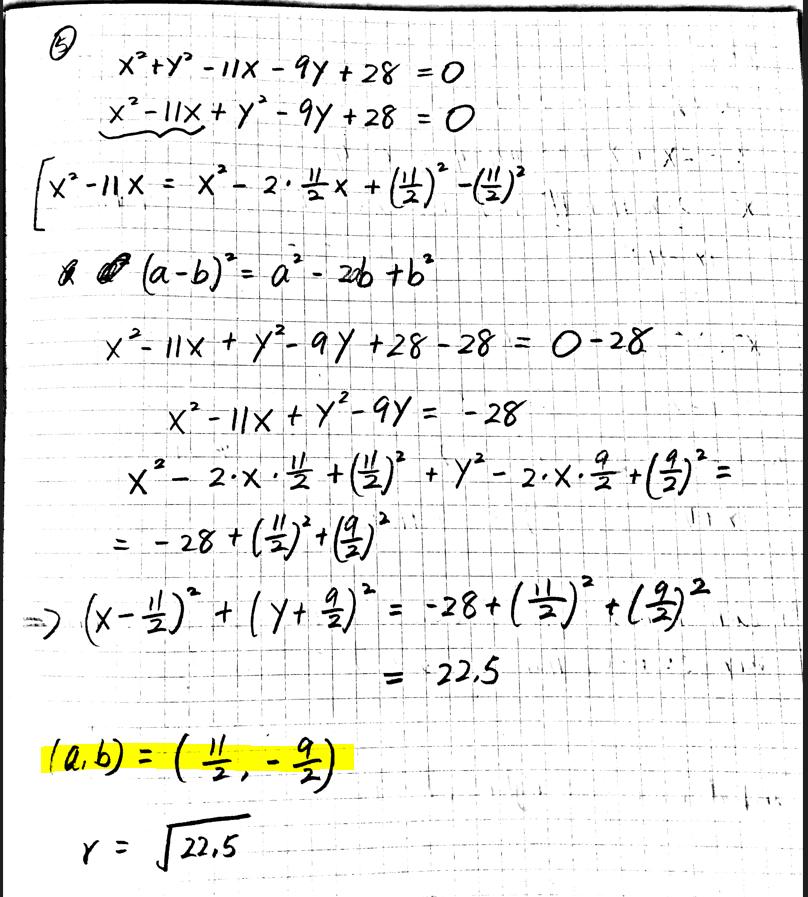 ⑤
x²+y² - 11x - 9y + 28 = 0
x² - 11x + y² - 9y + 28 = 0
[x² - 11x = x² - 2·11/2 x + (11/2)² - (11/2)²
(a-b)² = a² - 2ab + b²
x² - 11x + y² - 9y + 28 - 28 = 0 - 28
x² - 11x + y² - 9y = -28
x² - 2·x·11/2 + (11/2)² + y² - 2·x·9/2 + (9/2)² =
= -28 + (11/2)² + (9/2)²
=> (x - 11/2)² + (y + 9/2)² = -28 + (11/2)² + (9/2)²
= 22,5
(a,b) = (11/2, -9/2)
r = √22,5